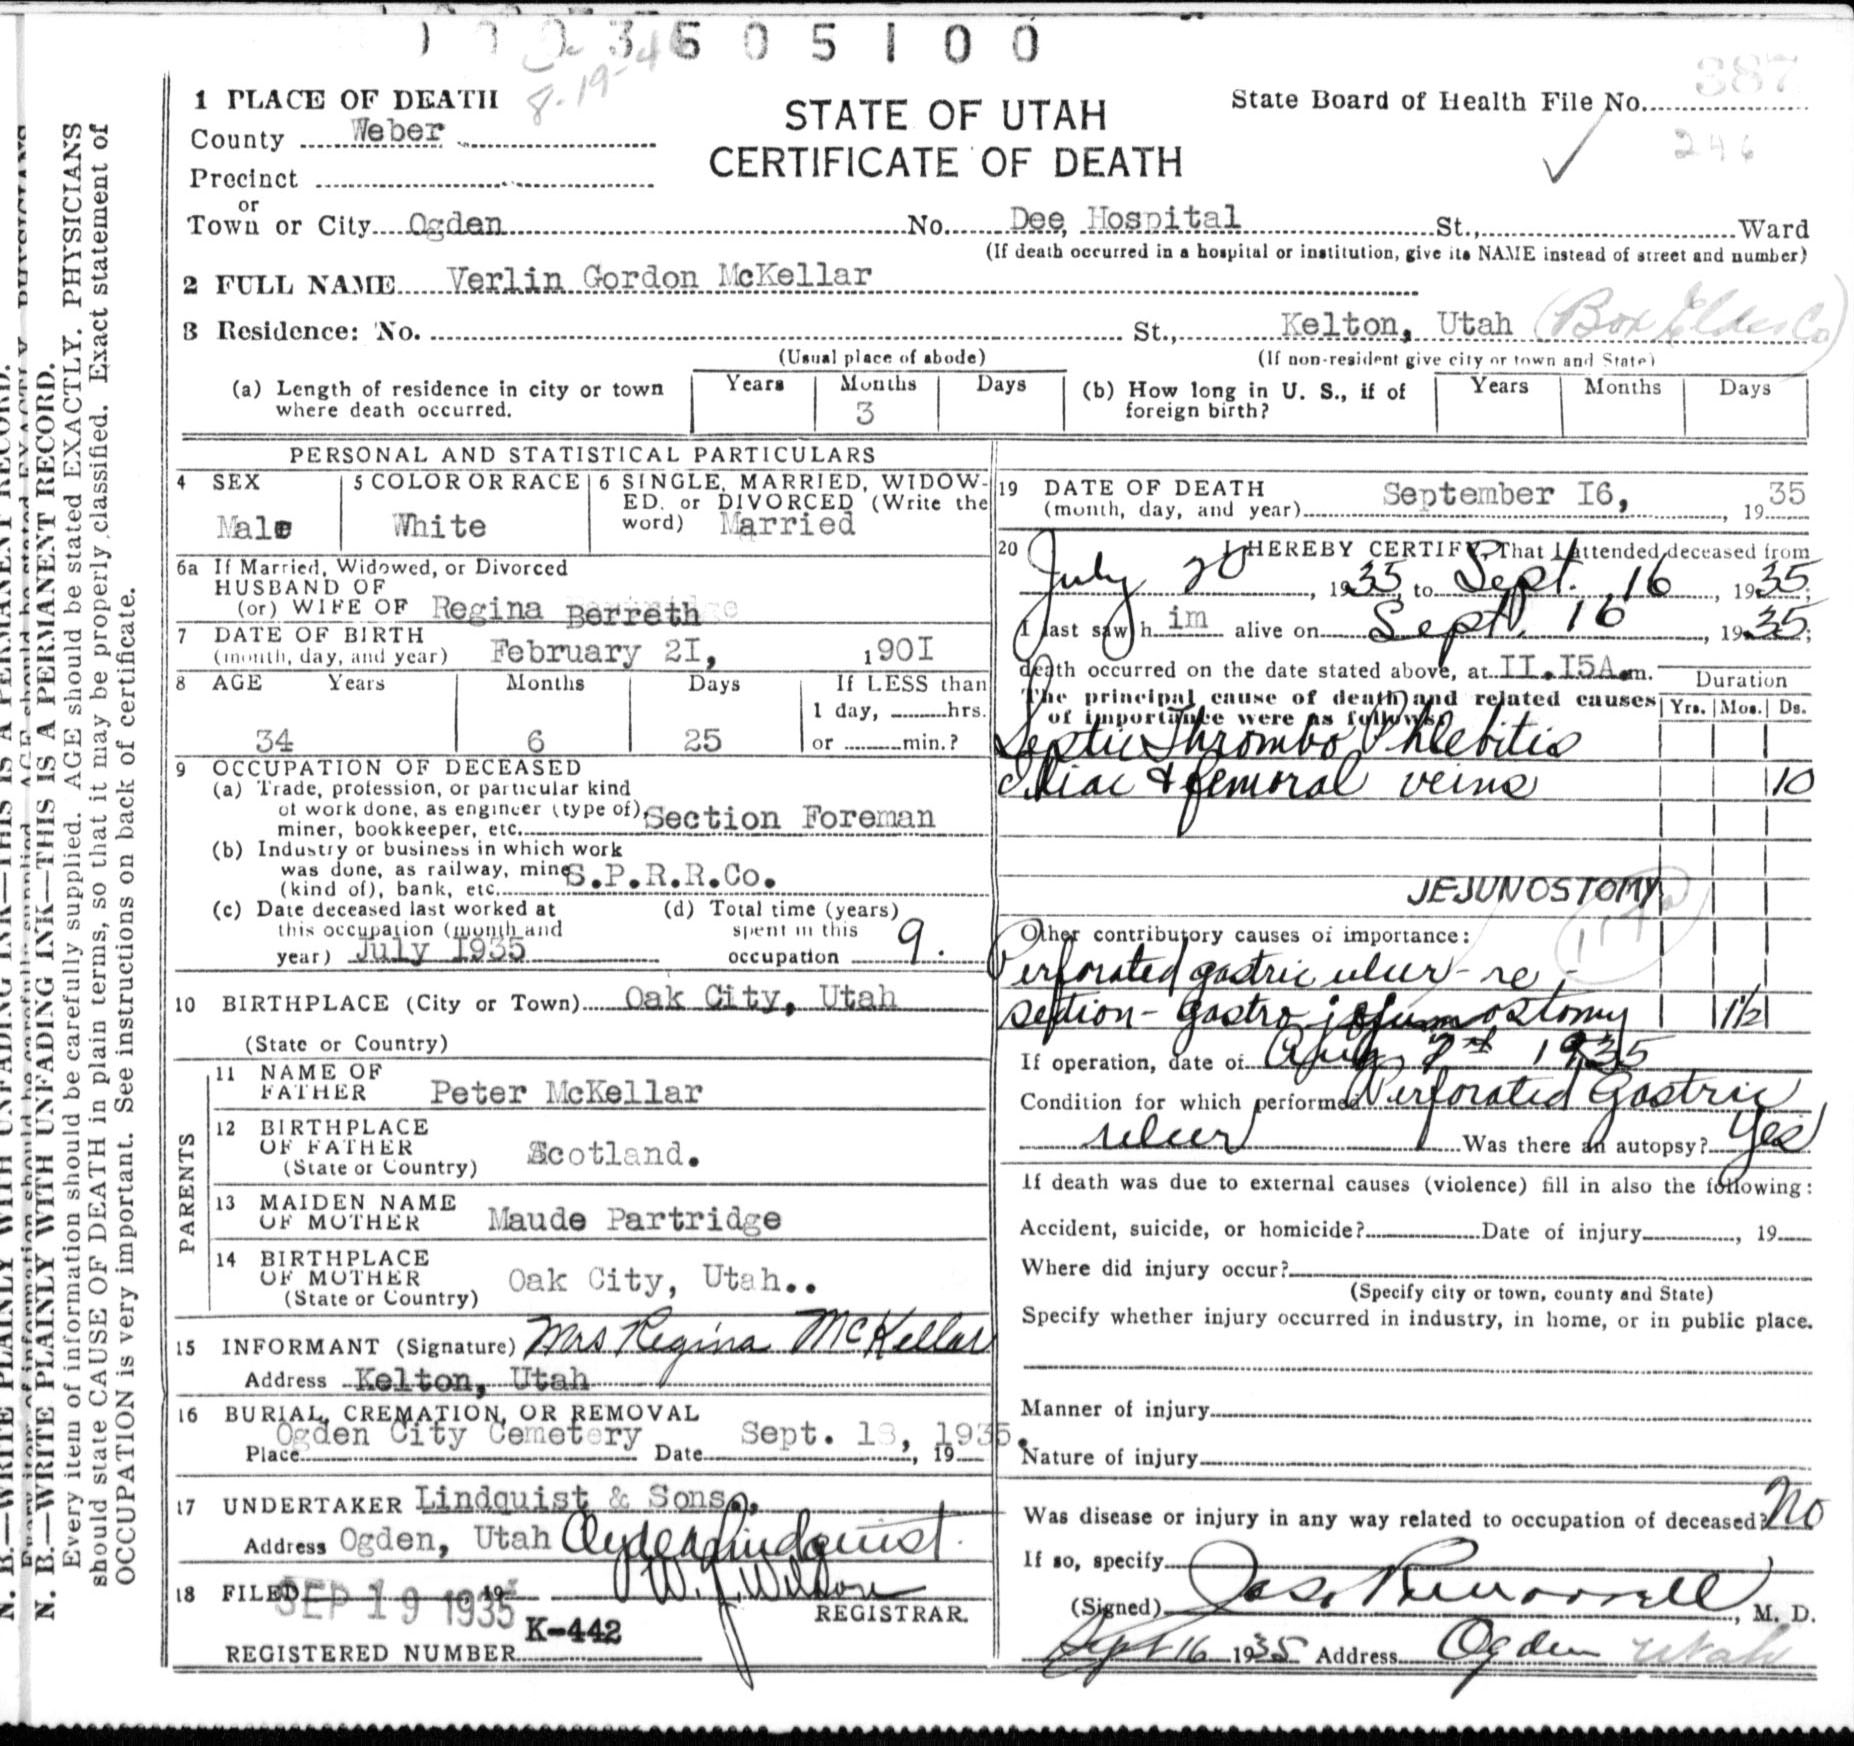 1003605100
8-19-4
387
246
1 PLACE OF DEATH
STATE OF UTAH
CERTIFICATE OF DEATH
State Board of Health File No.
County Weber
Precinct
or
Town or City Ogden No. Dee, Hospital St., Ward
(If death occurred in a hospital or institution, give its NAME instead of street and number)
2 FULL NAME Verlin Gordon McKellar
3 Residence: No. St., Kelton, Utah (Box Elder Co)
(Usual place of abode) (If non-resident give city or town and State)
(a) Length of residence in city or town where death occurred. Years Months 3 Days
(b) How long in U. S., if of foreign birth? Years Months Days
PERSONAL AND STATISTICAL PARTICULARS
4 SEX Male
5 COLOR OR RACE White
6 SINGLE, MARRIED, WIDOW-
ED, or DIVORCED (Write the
word) Married
6a If Married, Widowed, or Divorced
HUSBAND OF
(or) WIFE OF Regina Berreth
7 DATE OF BIRTH
(month, day, and year) February 2I, 190I
8 AGE Years Months Days If LESS than
1 day, hrs.
34 6 25 or min.?
9 OCCUPATION OF DECEASED
(a) Trade, profession, or particular kind
of work done, as engineer (type of),
miner, bookkeeper, etc. Section Foreman
(b) Industry or business in which work
was done, as railway, mine
(kind of), bank, etc. S.P.R.R.Co.
(c) Date deceased last worked at
this occupation (month and
year) July I935
(d) Total time (years)
spent in this
occupation 9.
10 BIRTHPLACE (City or Town) Oak City, Utah
(State or Country)
PARENTS
11 NAME OF
FATHER Peter McKellar
12 BIRTHPLACE
OF FATHER
(State or Country) Scotland.
13 MAIDEN NAME
OF MOTHER Maude Partridge
14 BIRTHPLACE
OF MOTHER
(State or Country) Oak City, Utah..
15 INFORMANT (Signature) Mrs Regina McKellar
Address Kelton, Utah
16 BURIAL, CREMATION, OR REMOVAL
Ogden City Cemetery Sept. 18, 1935.
Place Date , 19
17 UNDERTAKER Lindquist & Sons.,
Address Ogden, Utah Clyde A Lindquist.
18 FILED SEP 19 1935 19 W. J. Wilson
REGISTRAR.
K-442
REGISTERED NUMBER
19 DATE OF DEATH
(month, day, and year) September I6, , 1935
20 I HEREBY CERTIFY, That I attended deceased from
July 20 , 1935, to Sept. 16 , 1935;
I last saw h im alive on Sept. 16 , 1935;
death occurred on the date stated above, at II.I5A.m.
The principal cause of death and related causes
of importance were as follows:
Duration
Yrs. Mos. Ds.
Septic Thrombo Phlebitis
Iliac & femoral veins 10
JEJUNOSTOMY
Other contributory causes of importance:
Perforated gastric ulcer - re -
section - gastro jejunostomy 1½
If operation, date of Aug 2nd 1935
Condition for which performed Perforated Gastric
ulcer Was there an autopsy? Yes
If death was due to external causes (violence) fill in also the following:
Accident, suicide, or homicide? Date of injury , 19
Where did injury occur?
(Specify city or town, county and State)
Specify whether injury occurred in industry, in home, or in public place.
Manner of injury
Nature of injury
Was disease or injury in any way related to occupation of deceased? No
If so, specify
(Signed) , M. D.
Sept 16 1935 Address Ogden Utah
N. B.—WRITE PLAINLY WITH UNFADING INK—THIS IS A PERMANENT RECORD.
Every item of information should be carefully supplied. AGE should be stated EXACTLY. PHYSICIANS
should state CAUSE OF DEATH in plain terms, so that it may be properly classified. Exact statement of
OCCUPATION is very important. See instructions on back of certificate.